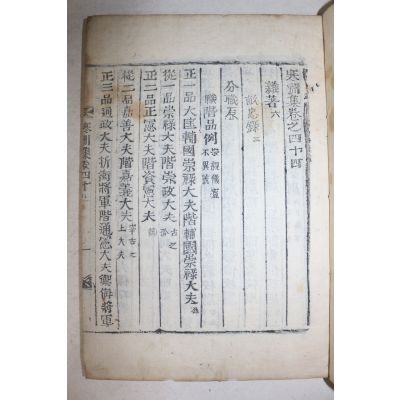 寒洲集卷之四十四
雜著 六
分職府
職階品例
正一品大匡輔國崇祿大夫階輔國崇祿大夫
從一品崇祿大夫階崇政大夫
正二品正憲大夫階資憲大夫
從二品嘉善大夫階嘉義大夫
正三品通政大夫折衝將軍階通憲大夫禦侮將軍
寒洲集卷四十